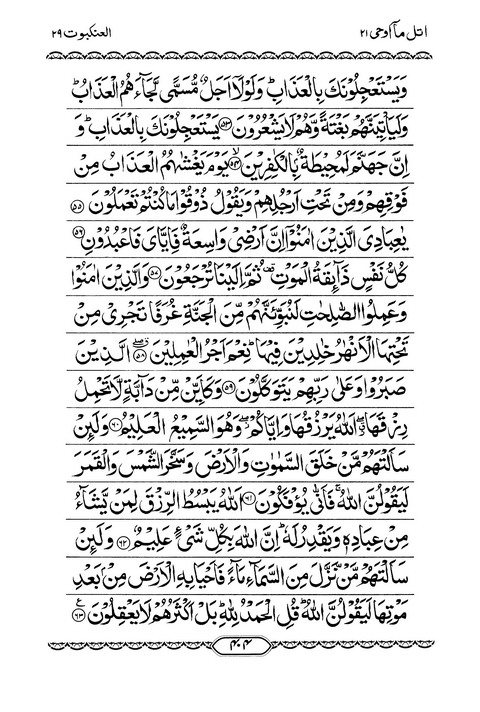 اتل مآ اوحی ۲۱
العنکبوت ۲۹
وَيَسْتَعْجِلُوْنَكَ بِالْعَذَابِ ؕ وَلَوْلَاۤ اَجَلٌ مُّسَمًّى لَّجَآءَهُمُ الْعَذَابُ ؕ
وَلَيَاْتِيَنَّهُمْ بَغْتَةً وَّهُمْ لَا يَشْعُرُوْنَ ﴿۵۳﴾ يَسْتَعْجِلُوْنَكَ بِالْعَذَابِ ؕ وَ
اِنَّ جَهَنَّمَ لَمُحِيْطَةٌۢ بِالْكٰفِرِيْنَ ﴿۵۴﴾ يَوْمَ يَغْشٰىهُمُ الْعَذَابُ مِنْ
فَوْقِهِمْ وَمِنْ تَحْتِ اَرْجُلِهِمْ وَيَقُوْلُ ذُوْقُوْا مَا كُنْتُمْ تَعْمَلُوْنَ ﴿۵۵﴾
يٰعِبَادِيَ الَّذِيْنَ اٰمَنُوْۤا اِنَّ اَرْضِيْ وَاسِعَةٌ فَاِيَّايَ فَاعْبُدُوْنِ ﴿۵۶﴾
كُلُّ نَفْسٍ ذَآئِقَةُ الْمَوْتِ ۫ ثُمَّ اِلَيْنَا تُرْجَعُوْنَ ﴿۵۷﴾ وَالَّذِيْنَ اٰمَنُوْا
وَعَمِلُوا الصّٰلِحٰتِ لَنُبَوِّئَنَّهُمْ مِّنَ الْجَنَّةِ غُرَفًا تَجْرِيْ مِنْ
تَحْتِهَا الْاَنْهٰرُ خٰلِدِيْنَ فِيْهَا ؕ نِعْمَ اَجْرُ الْعٰمِلِيْنَ ﴿۵۸﴾ الَّذِيْنَ
صَبَرُوْا وَعَلٰى رَبِّهِمْ يَتَوَكَّلُوْنَ ﴿۵۹﴾ وَكَاَيِّنْ مِّنْ دَآبَّةٍ لَّا تَحْمِلُ
رِزْقَهَا ۖ اَللّٰهُ يَرْزُقُهَا وَاِيَّاكُمْ ۖ وَهُوَ السَّمِيْعُ الْعَلِيْمُ ﴿۶۰﴾ وَلَئِنْ
سَاَلْتَهُمْ مَّنْ خَلَقَ السَّمٰوٰتِ وَالْاَرْضَ وَسَخَّرَ الشَّمْسَ وَالْقَمَرَ
لَيَقُوْلُنَّ اللّٰهُ ۚ فَاَنّٰى يُؤْفَكُوْنَ ﴿۶۱﴾ اَللّٰهُ يَبْسُطُ الرِّزْقَ لِمَنْ يَّشَآءُ
مِنْ عِبَادِهٖ وَيَقْدِرُ لَهٗ ؕ اِنَّ اللّٰهَ بِكُلِّ شَيْءٍ عَلِيْمٌ ﴿۶۲﴾ وَلَئِنْ
سَاَلْتَهُمْ مَّنْ نَّزَّلَ مِنَ السَّمَآءِ مَآءً فَاَحْيَا بِهِ الْاَرْضَ مِنْۢ بَعْدِ
مَوْتِهَا لَيَقُوْلُنَّ اللّٰهُ ؕ قُلِ الْحَمْدُ لِلّٰهِ ؕ بَلْ اَكْثَرُهُمْ لَا يَعْقِلُوْنَ ﴿۶۳﴾ ع
۴۰۴